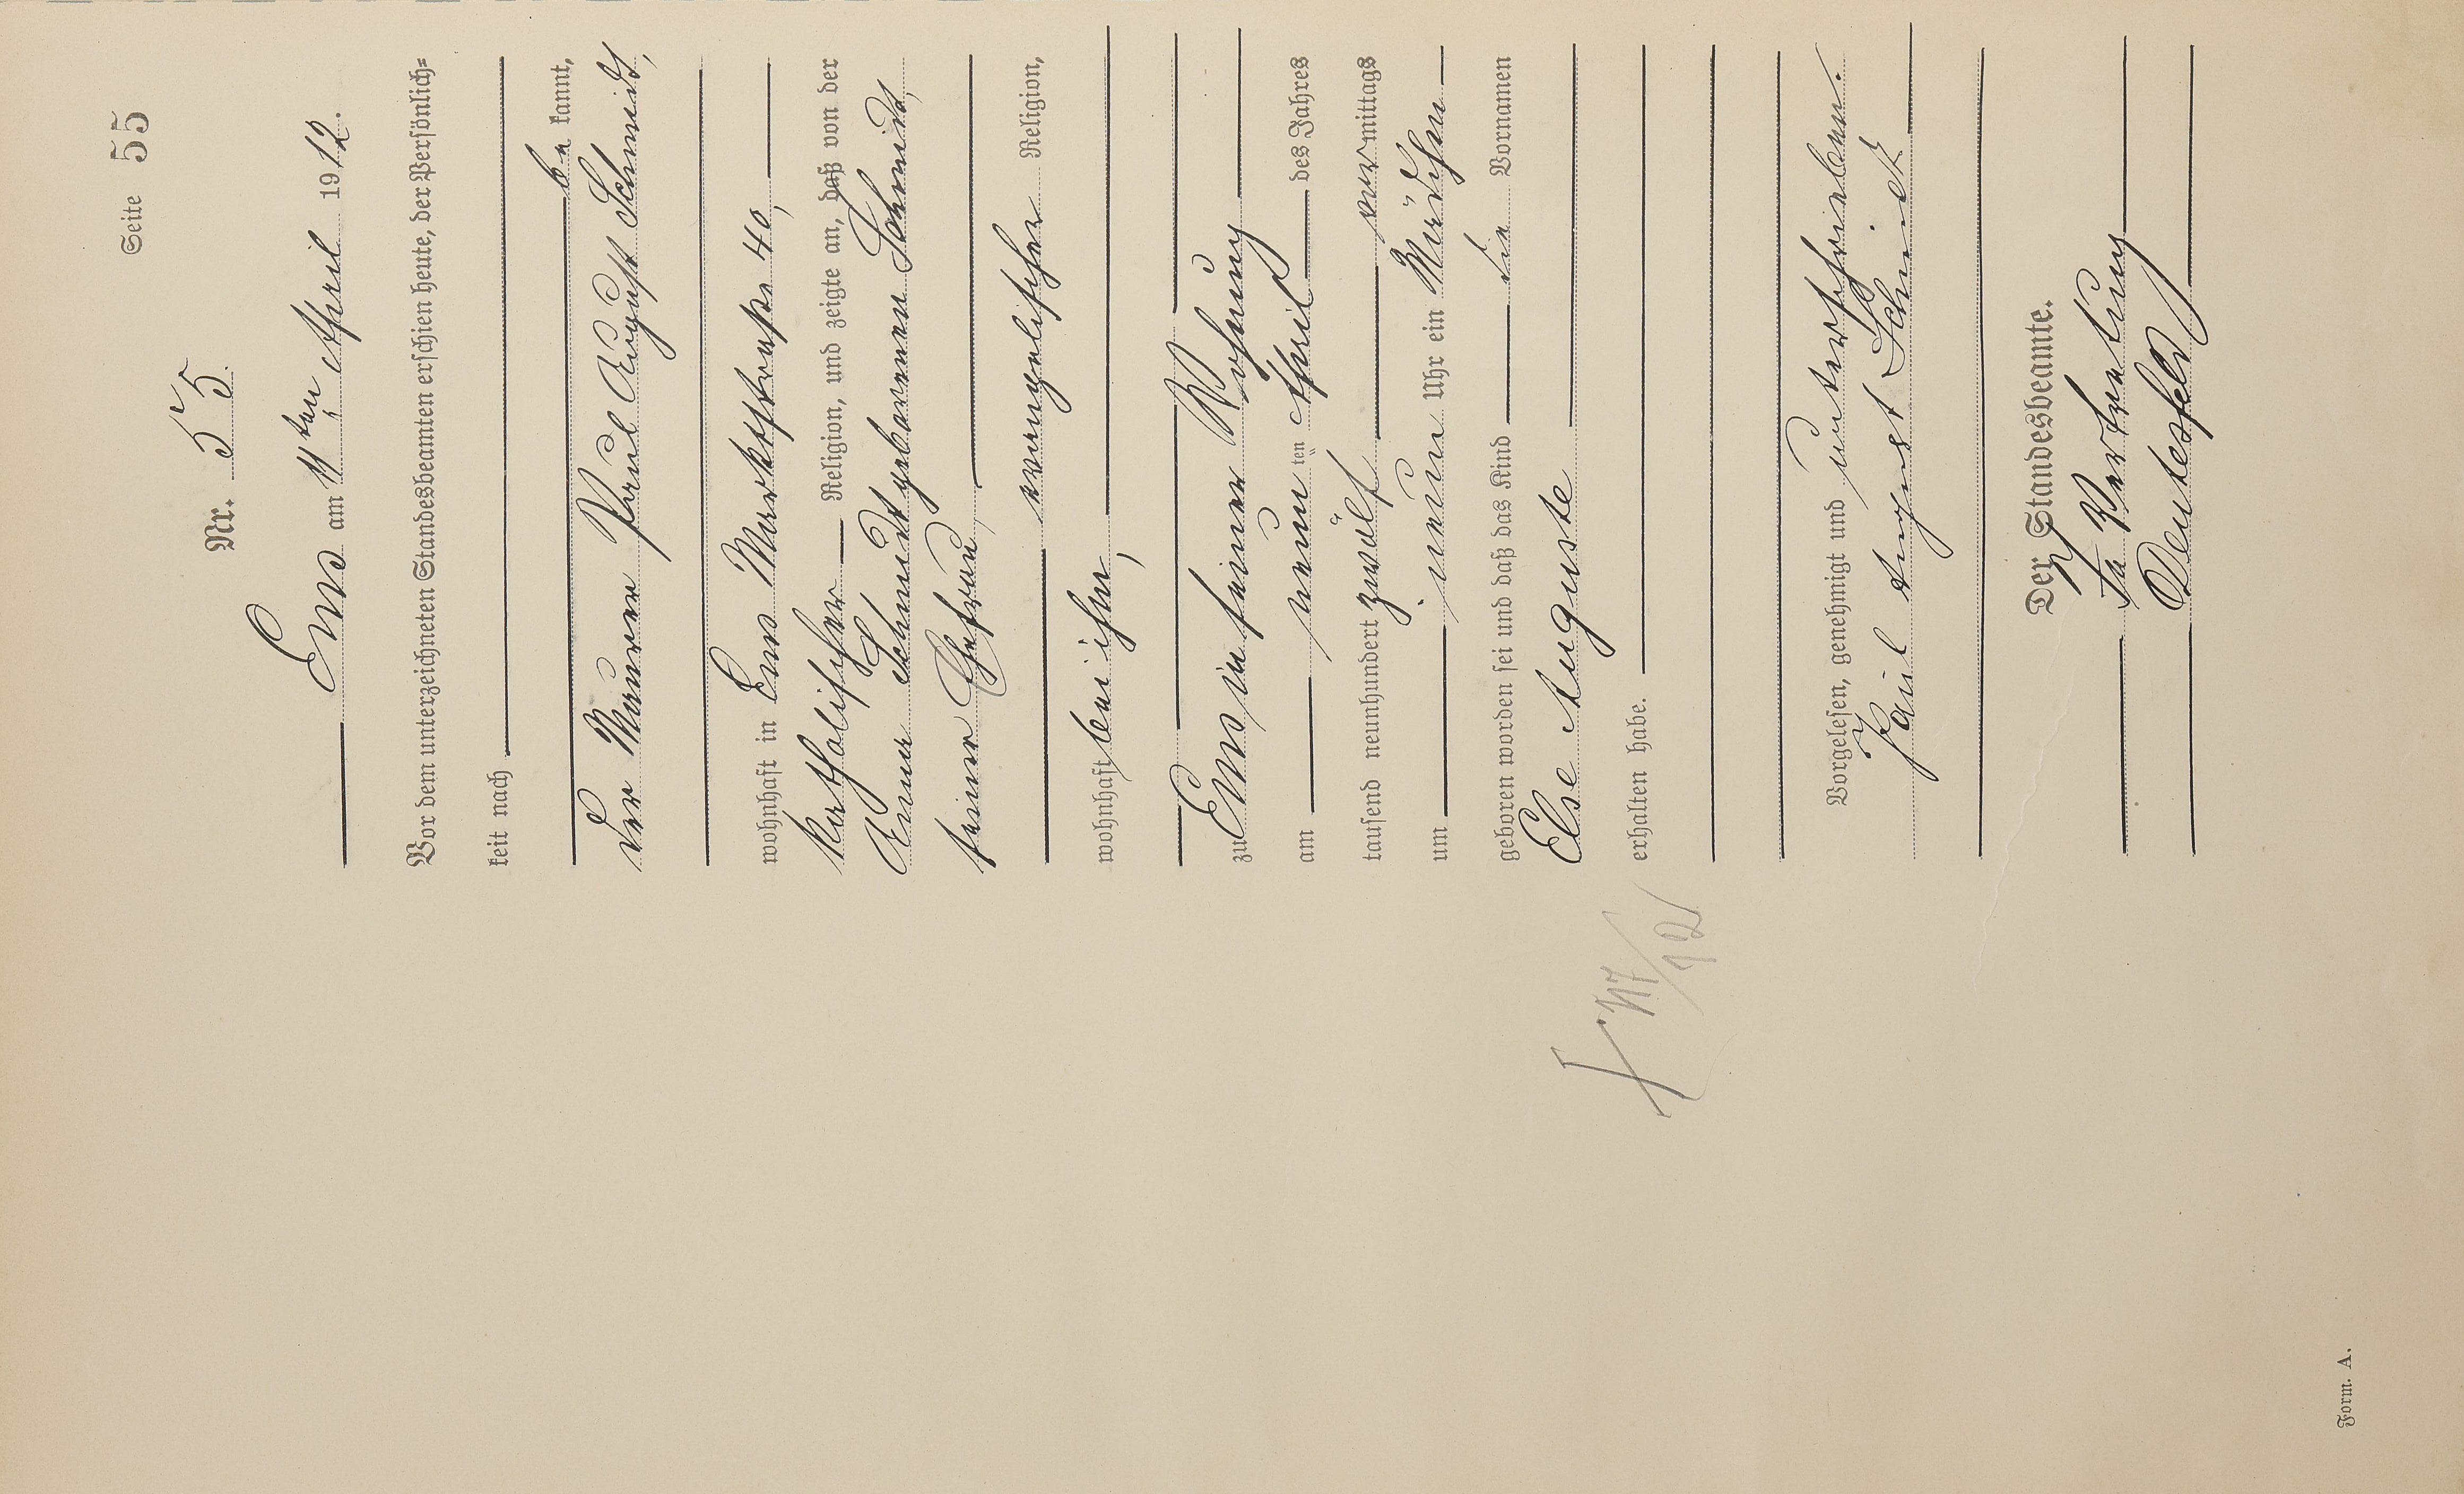 Seite 55
Nr. 55.
Ems am 11ten April 1912.
Vor dem unterzeichneten Standesbeamten erschien heute, der Persönlich=
keit nach
be kannt,
der Maurer Paul August Schmidt,
wohnhaft in Ems Marktstraße 40,
katholischer Religion, und zeigte an, daß von der
Anna Schmidt geborenen Schmidt,
seiner Ehefrau,
evangelischer Religion,
wohnhaft bei ihm,
zu Ems in seiner Wohnung
am neun ten April des Jahres
tausend neunhundert zwölf vormittags
um neun Uhr ein Mädchen
geboren worden sei und daß das Kind die Vornamen
Else Auguste
erhalten habe.
Vorgelesen, genehmigt und unterschrieben.
Paul August Schmidt
Der Standesbeamte.
In Vertretung
Deutesfeld
Form. A.